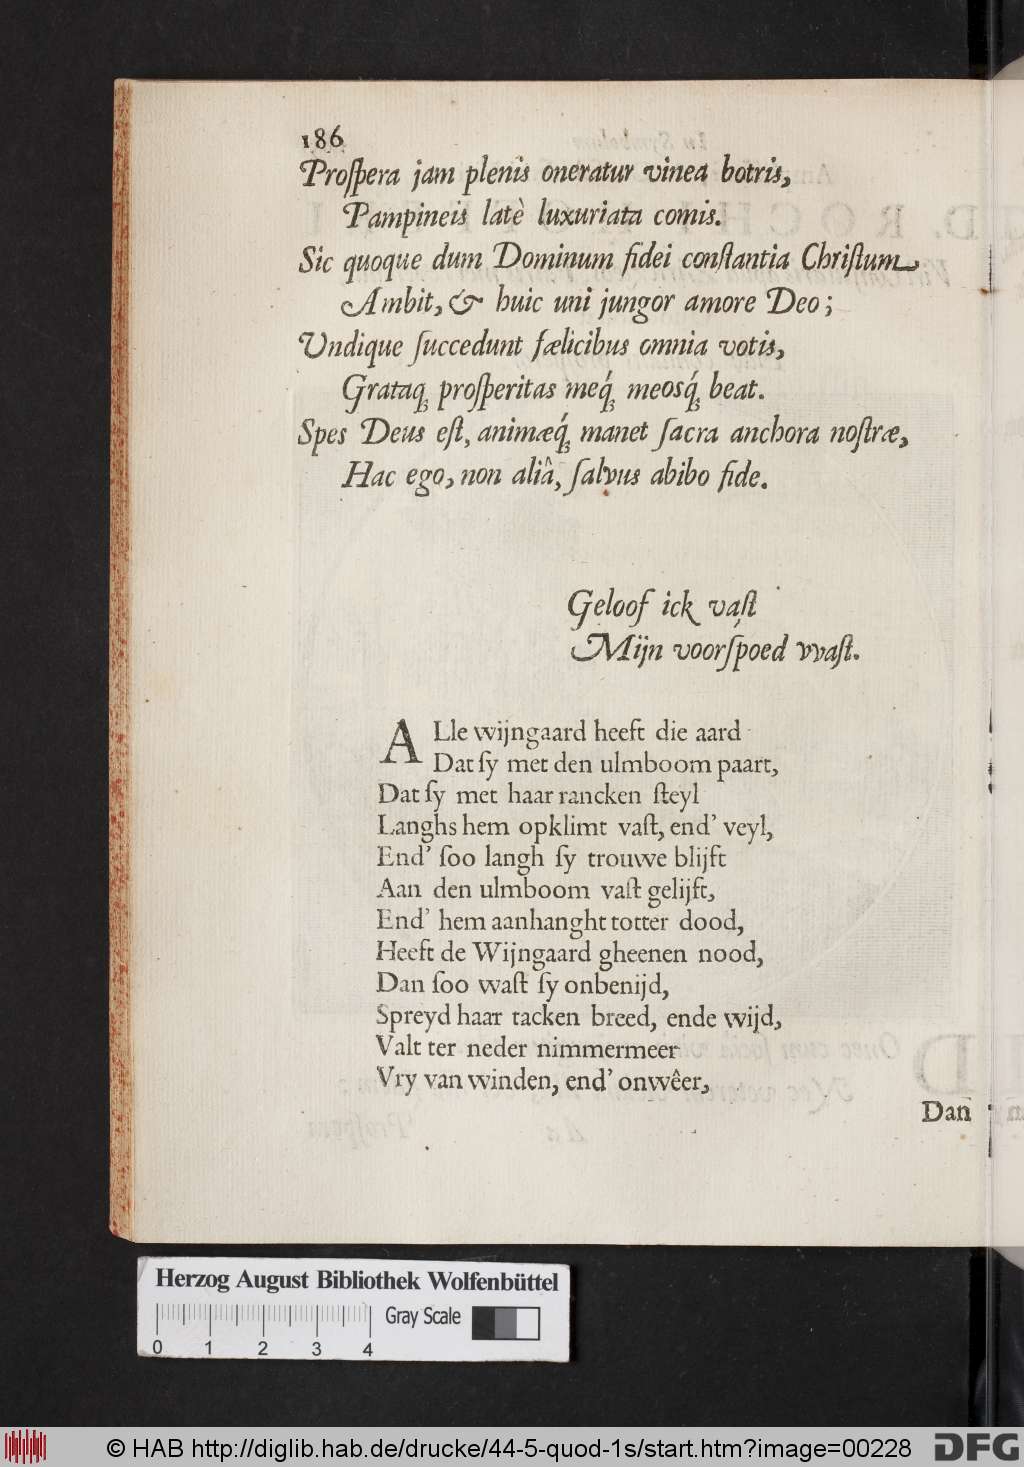 186
Proſpera jam plenis oneratur vinea botris,
Pampineis latè luxuriata comis.
Sic quoque dum Dominum fidei conſtantia Chriſtum
Ambit, & huic uni jungor amore Deo;
Undique ſuccedunt fælicibus omnia votis,
Grataq́ꝫ proſperitas meq́ꝫ meosq́ꝫ beat.
Spes Deus eſt, animæq́ꝫ manet ſacra anchora noſtræ,
Hac ego, non aliâ, ſalvus abibo fide.
Geloof ick vaſt
Mijn voorſpoed vvaſt.
ALle wijngaard heeft die aard
Dat ſy met den ulmboom paart,
Dat ſy met haar rancken ſteyl
Langhs hem opklimt vaſt, end’ veyl,
End’ ſoo langh ſy trouwe blijft
Aan den ulmboom vaſt gelijft,
End’ hem aanhanght totter dood,
Heeft de Wijngaard gheenen nood,
Dan ſoo waſt ſy onbenijd,
Spreyd haar tacken breed, ende wijd,
Valt ter neder nimmermeer
Vry van winden, end’ onwêer,
Dan
Herzog August Bibliothek Wolfenbüttel
Gray Scale
0 1 2 3 4
© HAB http://diglib.hab.de/drucke/44-5-quod-1s/start.htm?image=00228
DFG